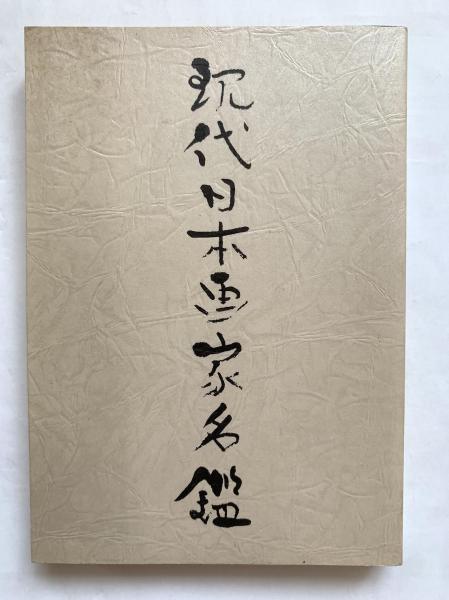 現代日本画家名鑑